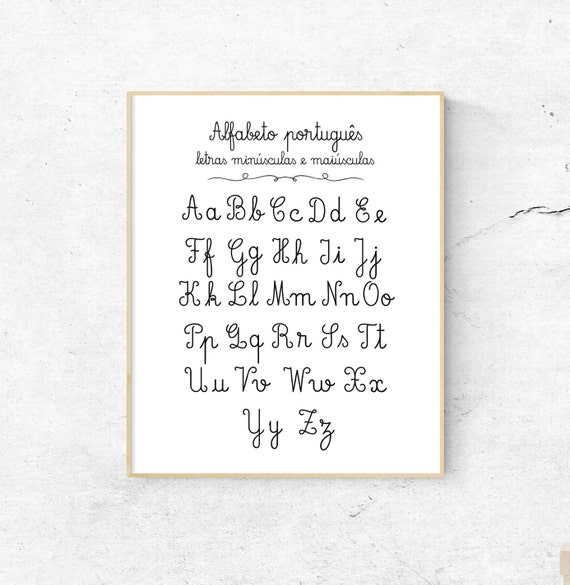 Alfabeto português
letras minúsculas e maiúsculas
Aa Bb Cc Dd Ee
Ff Gg Hh Ii Jj
Kk Ll Mm Nn Oo
Pp Qq Rr Ss Tt
Uu Vv Ww Xx
Yy Zz